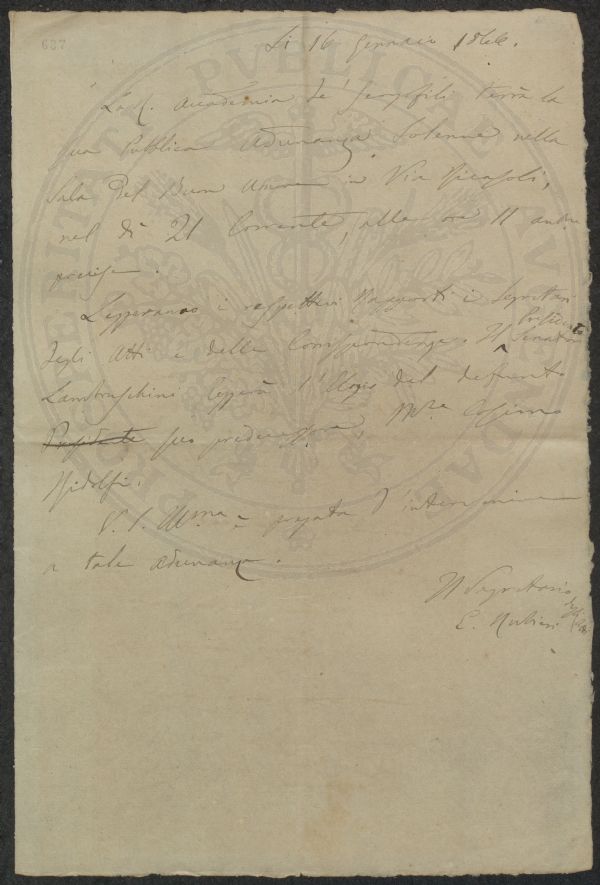 637
Li 16 Gennaio 1866.
La R. Accademia de' Georgofili terrà la
sua Pubblica Adunanza Solenne nella
Sala del Buon Umore in Via Ricasoli,
nel dì 21 Corrente, alle ore 11 antim.
precise.
Leggeranno i rispettivi Rapporti i Segretari
degli Atti e delle Corrispondenze. Il Presidente Senatore
Lambruschini leggerà l'Elogio del defunto
Presidente suo predecessore, Mse Cosimo
Ridolfi.
V. S. Illma è pregata d'intervenire
a tale adunanza.
Il Segretario degli Atti
E. Rubieri
PROSPERITATI PVBLICAE AVGENDAE